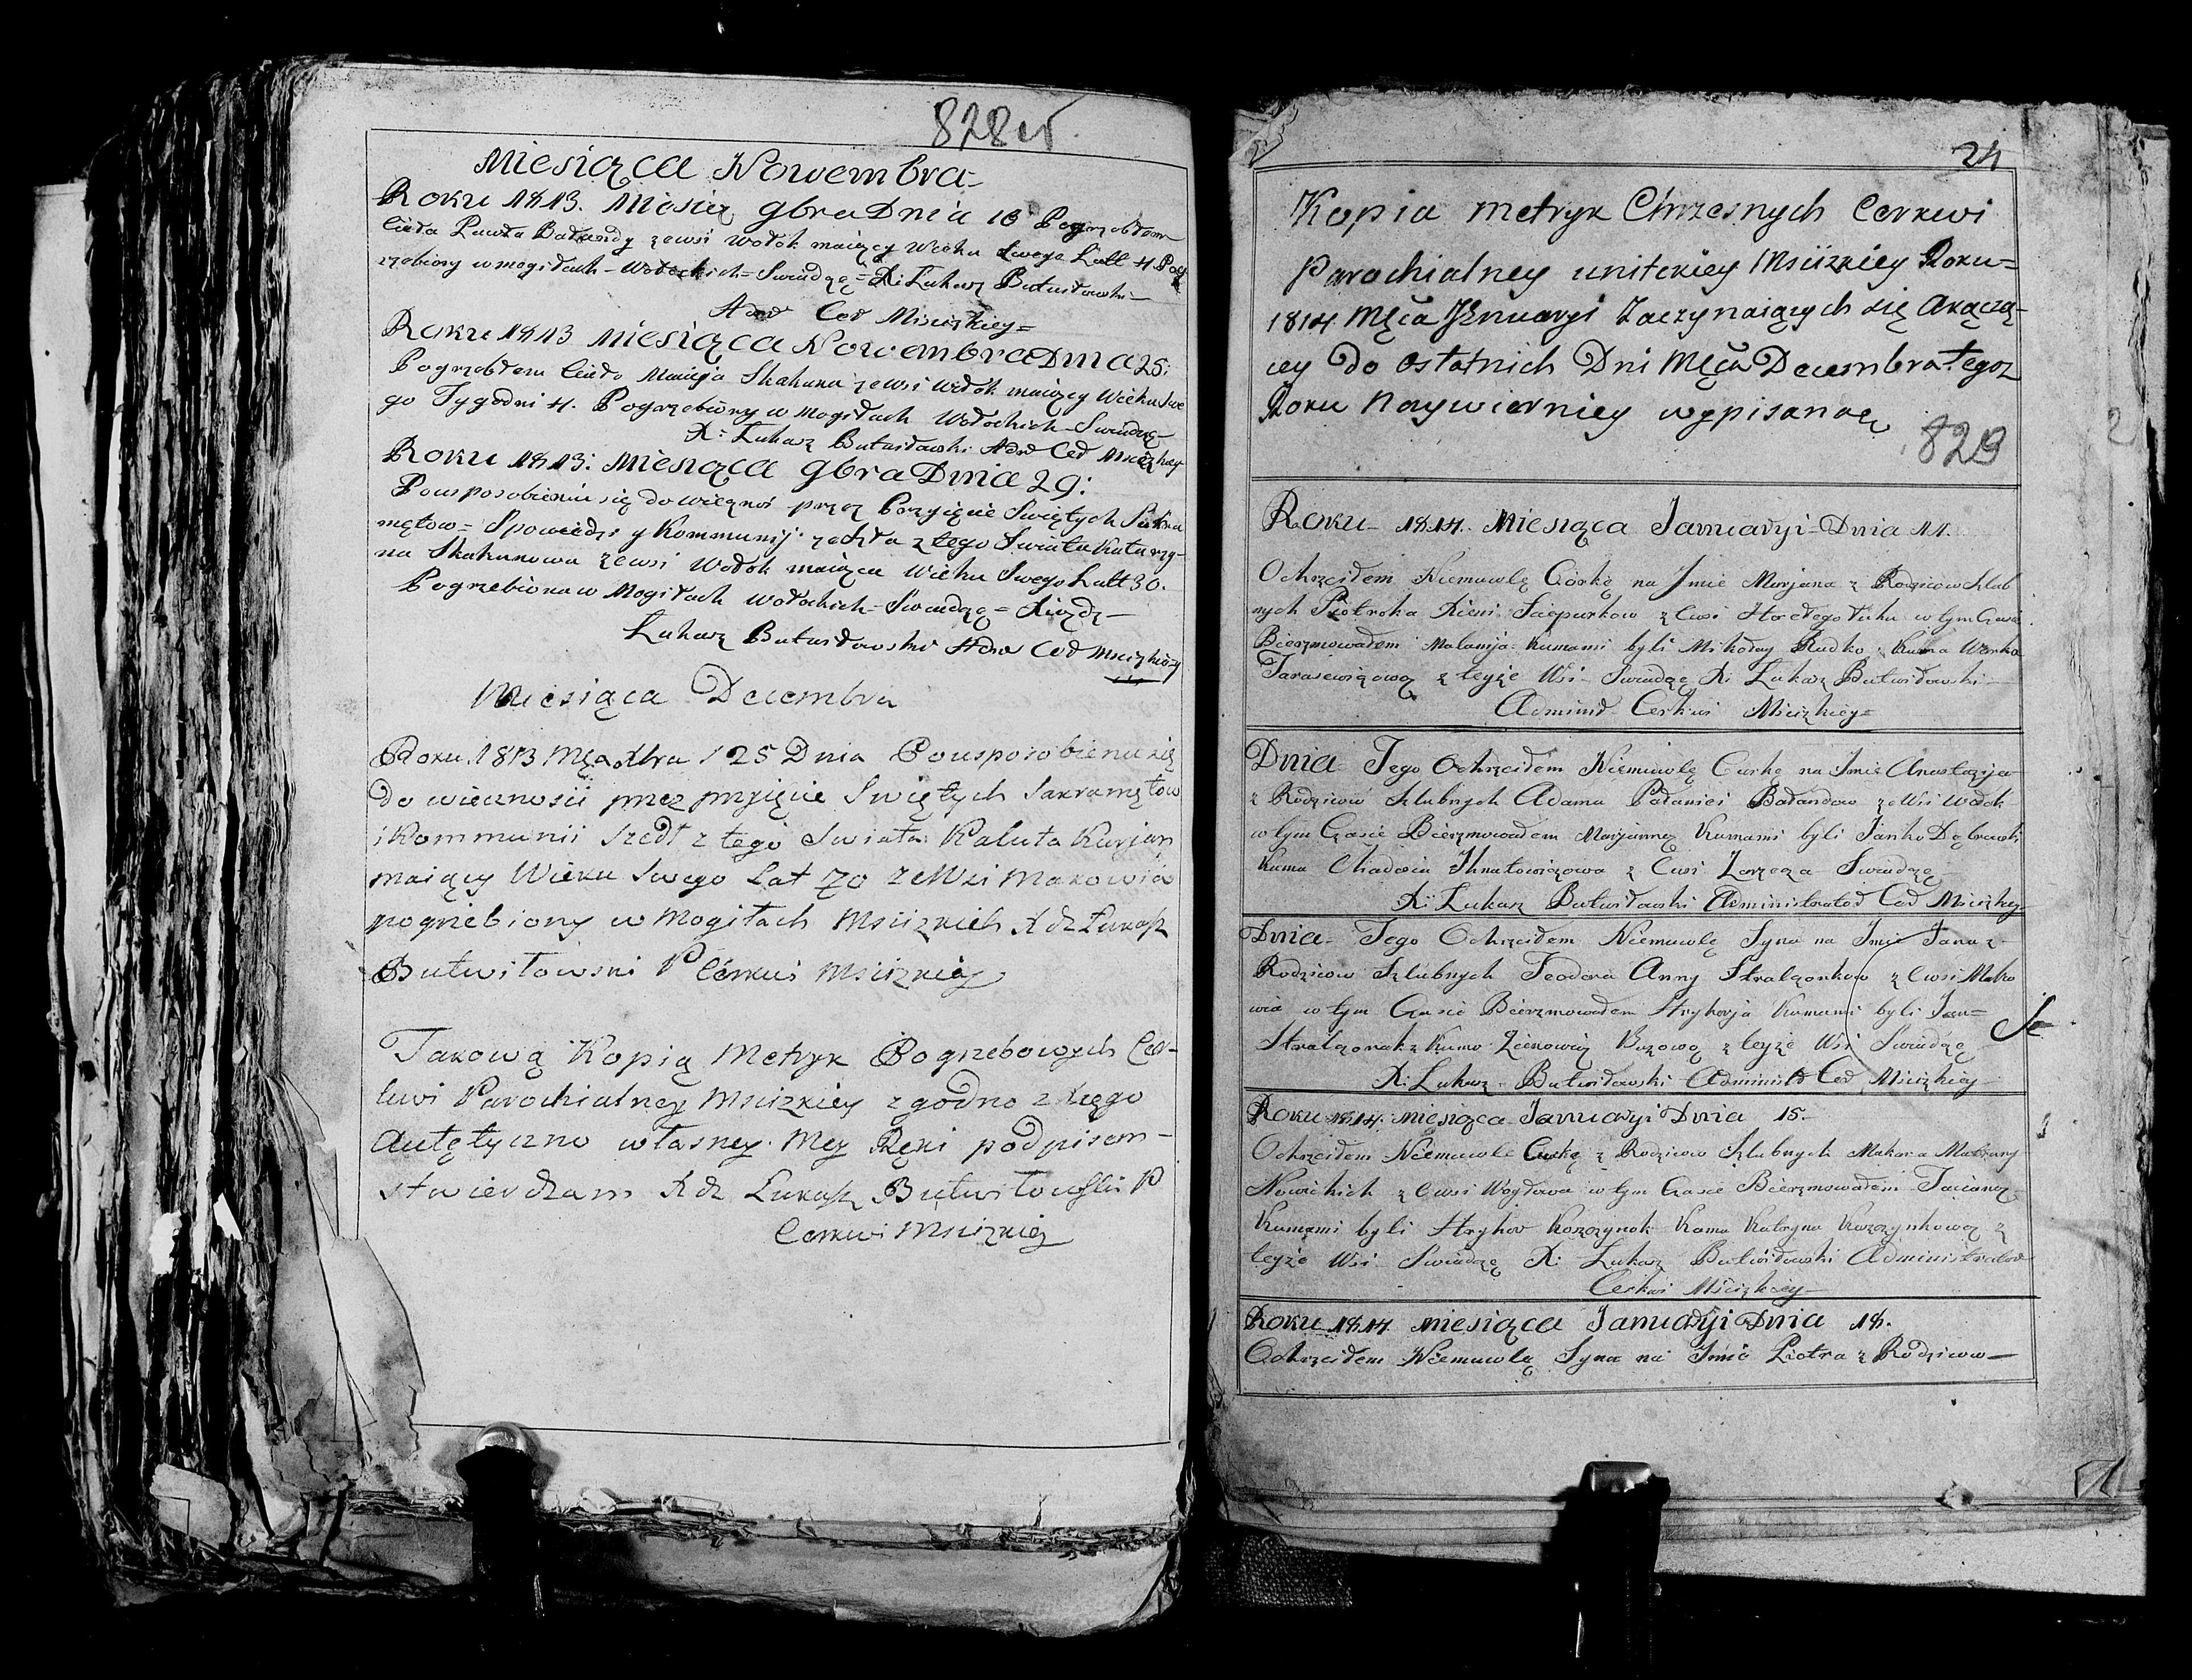 828 об
Miesiąca Nowembra
Roku 1813. Miesią 9bra Dnia 18 Pogrzebłem
Ciało Pawła Bałandy zewsi Wołok maiący Wieku Swego Latt 4. Pog
rzebiony w mogiłach Wołockich = Swiadczę = X. Łukasz Butwiłowski
Adm Cer Msciżkiey =
Roku 1813 Miesiąca Nowembra Dnia 25:
Pogrzebłem Ciało Macieja Skakuna zewsi Wołok maiący Wieku Swe
go Tygodni 4. Pogrzebiony w Mogiłach Wołockich Swiadczę
X: Łukasz Butwiłowski Adm Cer Msciżkiey
Roku 1813: Miesiąca 9bra Dnia 29:
Pousposobieniu się do wiecznoś przez Przyięcie Swiętych Sakra
mętow = Spowiedzi y Kommunij zeszła z tego Swiata Katarzy-
na Skakunowa zewsi Wołok maiąca Wieku Swego Latt 30.
Pogrzebiona w Mogiłach Wołockich = Swiadczę = Xiądz
Łukasz Butwiłowski Adm Cer Msciżkiey
Miesiąca Decembra
Roku 1813 Męca Xbra 25 Dnia Pousposobieniu się
do wiecznosii przez przyięcie Swiętych Sakramętow
i Kommunii szedł z tego Swiata Kaluta Kurjan
maiący Wieku Swego Lat 70 ze Wsi Makowia
pogrzebiony w Mogiłach Msciżkich X dz Łukasz
Butwiłowski P Cerkwi Msciżkiey
Takową Kopią Metryk Pogrzebowych Cer-
kwi Parochialney Msciżkiey zgodno z xięgo
Autętyczno własney Mey Ręki podpisem
stwierdzam X dz Łukasz Butwiłowski P
Cerkwi Msciżkiey
24
Kopia metryk Chrzesnych Cerkwi
Parochialney unitskiey Msciżkiey Roku =
1814 Męca Januaryi Zaczynaiących się Akączą-
cey do ostatnich Dni Męca Decembra tegoz
Roku Naywierniey wypisana
829
Roku 1814. Miesiąca Januaryi Dnia 11.
Ochrzciłem Niemowlę Córkę na Jmie Marjana z Rodzicow Szlub
nych Piotroka Xieni Sciepurkow z Cwsi w tym Czasie
Bierzmowałem Malanija Kumami byli Mikołay Rudko Kuma Warka
Tarasewiczowa z teyże Wsi Swiadczę X: Łukasz Butwiłowski
Adminis Cerkwi Msciżkiey =
Dnia Tego Ochrzciłem Niemowlę Curkę na Jmie Anastazija
z Rodzicow Szlubnych Adama Pałaniei Bałandow ze Wsi Wołok
w tym Czasie Bierzmowałem Marjannę Kumami byli Janko Dąbrowski
Kuma Chadosia Jhnatowiczowa z Cwsi Zarzecza Swiadczę
X: Łukasz Butwiłowski Administrator Cer Msciżkiey
Dnia Tego Ochrzciłem Niemowlę Syna na Jmie Jana z
Rodzicow Szlubnych Teodora Anny Stralczonkow z Cwsi Mako
wia w tym Czasie Bierzmowałem Hryhorja Kumami byli Jan =
Stralczonak z Kumo Zienowią Buzowę z teyże Wsi Swiadczę
X: Łukasz Butwiłowski Administ Cer Msciżkiey
Roku 1814. Miesiąca Januaryi Dnia 15.
Ochrzciłem Niemowle Curkę z Rodzicow Szlubnych Makara Matrony
Nowickich z Cwsi Wozdowa w tym Czasie Bierzmowałem Tacianę
Kumami byli Hryhor Korzynok Kuma Katryna Korzynkowa z
teyże Wsi Swiadczę X: Łukasz Butwiłowski Administrator
Cerkwi Msciżkiey
Roku 1814 Miesiąca Januaryi Dnia 18.
Ochrzciłem Niemowlę Syna na Jmie Piotra z Rodzicow